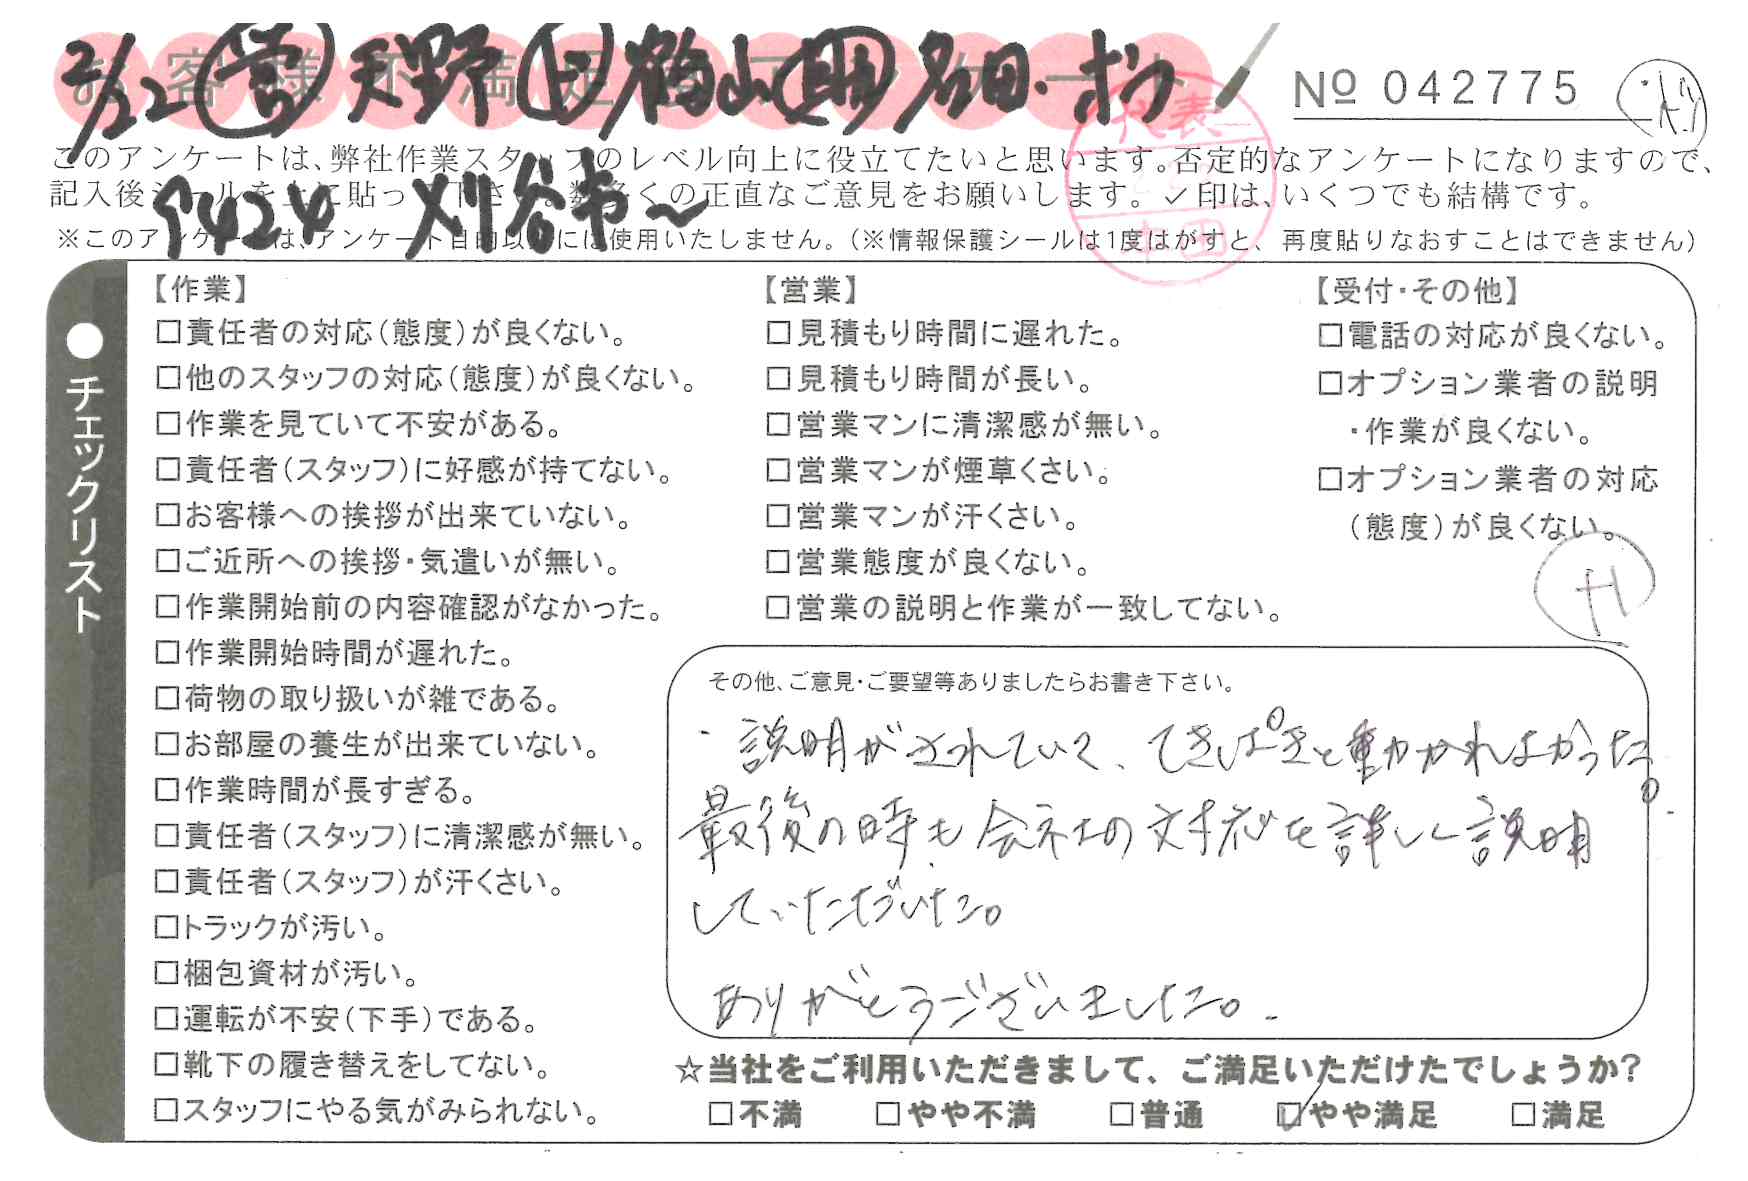 お客様不満足度アンケート
2/22 営 天野 上 梅山 囲 名田・ボウ
№ 042775
このアンケートは、弊社作業スタッフのレベル向上に役立てたいと思います。否定的なアンケートになりますので、
記入後シールを上に貼って下さい。数多くの正直なご意見をお願いします。✓印は、いくつでも結構です。
9424 刈谷市〜
※このアンケートは、アンケート目的以外には使用いたしません。(※情報保護シールは1度はがすと、再度貼りなおすことはできません)
代表
本田
●チェックリスト
【作業】
□責任者の対応(態度)が良くない。
□他のスタッフの対応(態度)が良くない。
□作業を見ていて不安がある。
□責任者(スタッフ)に好感が持てない。
□お客様への挨拶が出来ていない。
□ご近所への挨拶・気遣いが無い。
□作業開始前の内容確認がなかった。
□作業開始時間が遅れた。
□荷物の取り扱いが雑である。
□お部屋の養生が出来ていない。
□作業時間が長すぎる。
□責任者(スタッフ)に清潔感が無い。
□責任者(スタッフ)が汗くさい。
□トラックが汚い。
□梱包資材が汚い。
□運転が不安(下手)である。
□靴下の履き替えをしてない。
□スタッフにやる気がみられない。
【営業】
□見積もり時間に遅れた。
□見積もり時間が長い。
□営業マンに清潔感が無い。
□営業マンが煙草くさい。
□営業マンが汗くさい。
□営業態度が良くない。
□営業の説明と作業が一致してない。
【受付・その他】
□電話の対応が良くない。
□オプション業者の説明
・作業が良くない。
□オプション業者の対応
(態度)が良くない。
その他、ご意見・ご要望等ありましたらお書き下さい。
・説明がされていて、てきぱきと動かれよかった。
最後の時も会社の対応を詳しく説明
していただいた。
ありがとうございました。
☆当社をご利用いただきまして、ご満足いただけたでしょうか?
□不満 □やや不満 □普通 ☑やや満足 □満足